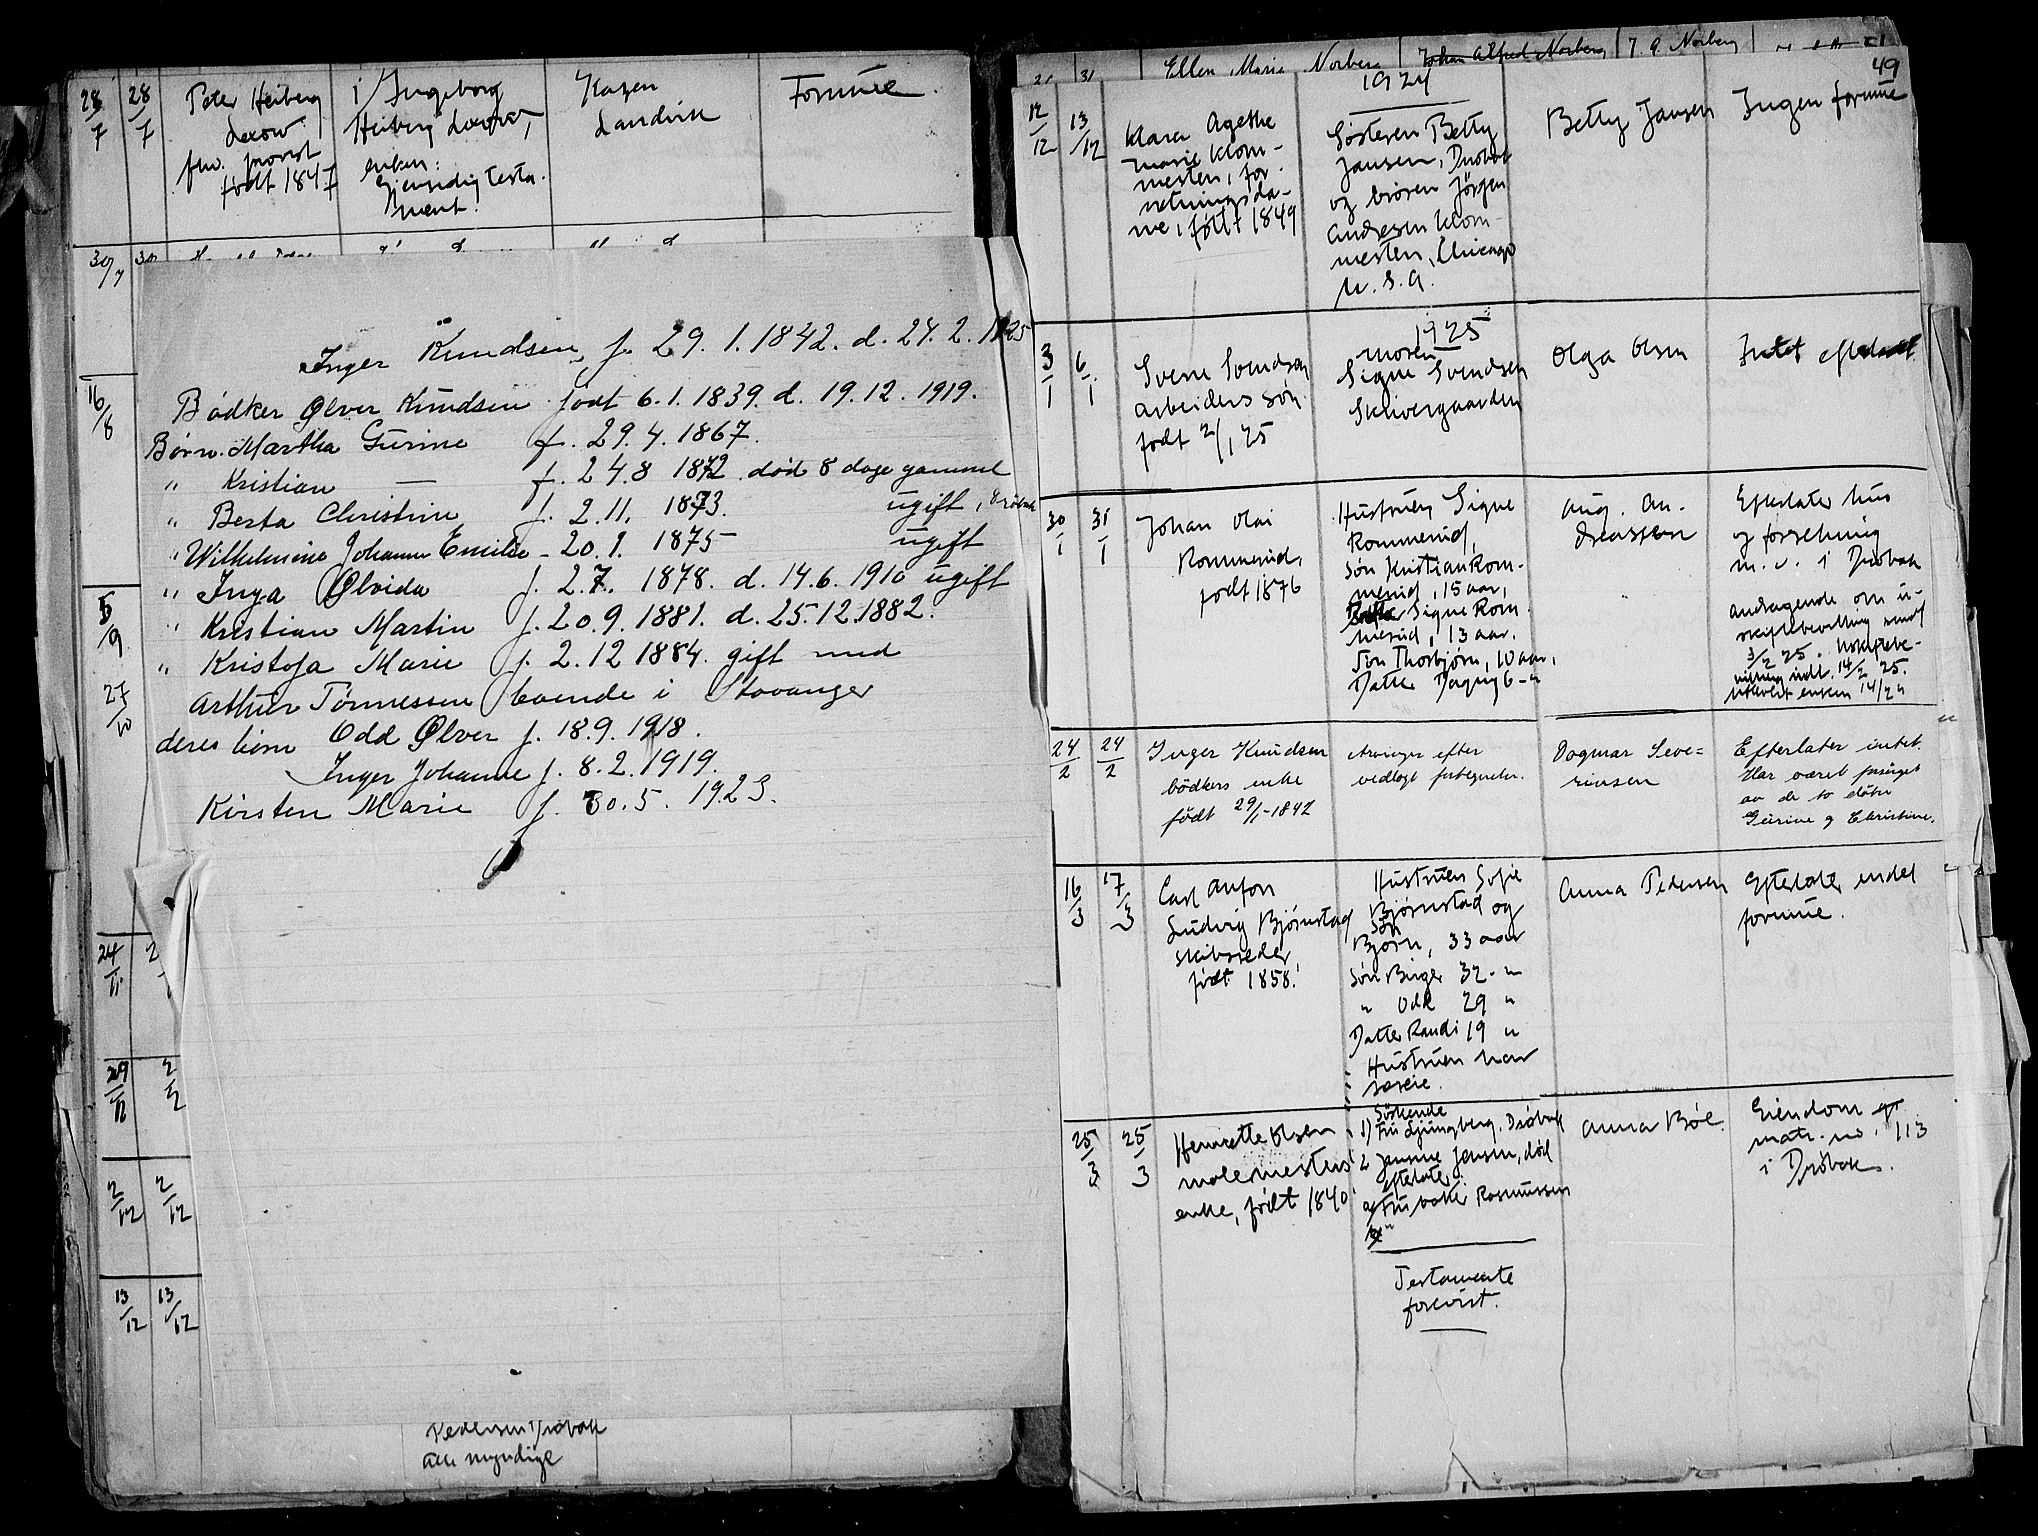 28/7 28/7
Peter Heiberg
Lexow
fhv. provst
født 1847
Ingeborg
Heiberg Lexow,
enken:
Gjensidig Testa-
ment.
Hagen
Landvik
Formue.
30/7 30
16/8
5/9
27/10
24/11 2
29/12 2/12
2/12 2/12
13/12 13/12
Inger Knudsen, f. 29. 1. 1842. d. 24. 2. 1925
Bødker Ølver Knudsen født 6. 1. 1839. d. 19. 12. 1919.
Børn. Martha Gurine f. 29. 4. 1867.
" Kristian — f. 24. 8 1872 død 8 dage gammel
" Berta Christine f. 2. 11. 1873. ugift, Drøbak
" Wilhelmine Johanne Emilie - 20. 1. 1875 ugift
" Inga Ølvida f. 2. 7. 1878. d. 14. 6. 1910 ugift
" Kristian Martin f. 20. 9. 1881. d. 25. 12. 1882.
" Kristofa Marie f. 2. 12 1884. gift med
Arthur Tønnessen boende i Stavanger
deres børn Odd Ølver f. 18. 9. 1918.
Inger Johanne f. 8. 2. 1919.
Kirsten Marie f. 30. 5. 1923.
Pedersen Drøbak
alle myndige
Ellen Marie Norberg Johan Alfred Norberg J. A. Norberg
49
1924
12/12 13/12
Klara Agethe
Marie Klom-
mesten, for-
retningsda-
me, født 1849
Søsteren Betty
Jansen, Drøbak
og broren Jørgen
Andresen Klom-
mesten, Chicago
U. S. A.
Betty Jansen
Ingen formue
1925
3/1 6/1
Sverre Svendsen
arbeiders søn
født 2/1 25
Moren
Signe Svendsen
Skrivergaarden
Olga Olsen
Intet efterladt
30/1 31/1
Johan Olai
Rommerud,
født 1876
Hustruen Signe
Rommerud,
Søn Kristian Rom-
merud, 15 aar,
Datter Signe Rom-
merud, 13 aar.
Søn Thorbjørn, 10 aar,
Datter Dagny 6 - "
Aug. An-
dreassen
Efterlater hus
og forretning
m. v. i Drøbak
Andragende om u-
skiftebevilling
3/2 25.
14/2 25.
enken 14/2 "
24/2 24/2
Inger Knudsen
bødkers enke
født 29/1-1842
Arvinger efter
vedlagt fortegnelse.
Dagmar Seve=
rinsen
Efterlater intet.
Har været forsørget
av de to døtre
Gurine og Christine.
16/3 17/3
Carl Anton
Ludvig Bjørnstad
skibsreder
født 1858.
Hustruen Sofie
Bjørnstad og
Søn
Bjørn, 33 aar
Søn Birger 32 - "
" Odd 29 "
Datter Randi 19 "
Hustruen har
særeie.
Anna Pedersen
Efterlater endel
formue.
25/3 25/3
Henriette Olsen
malermesters
enke, født 1840
Søskende
1) Fru Ljungberg, Drøbak
2 Jensine Jensen, død
Efterlater:
a) Fru Rasmussen
b) "
Testamente
forevist.
Anna Bøe
Eiendom
matr. no. 113
i Drøbak.